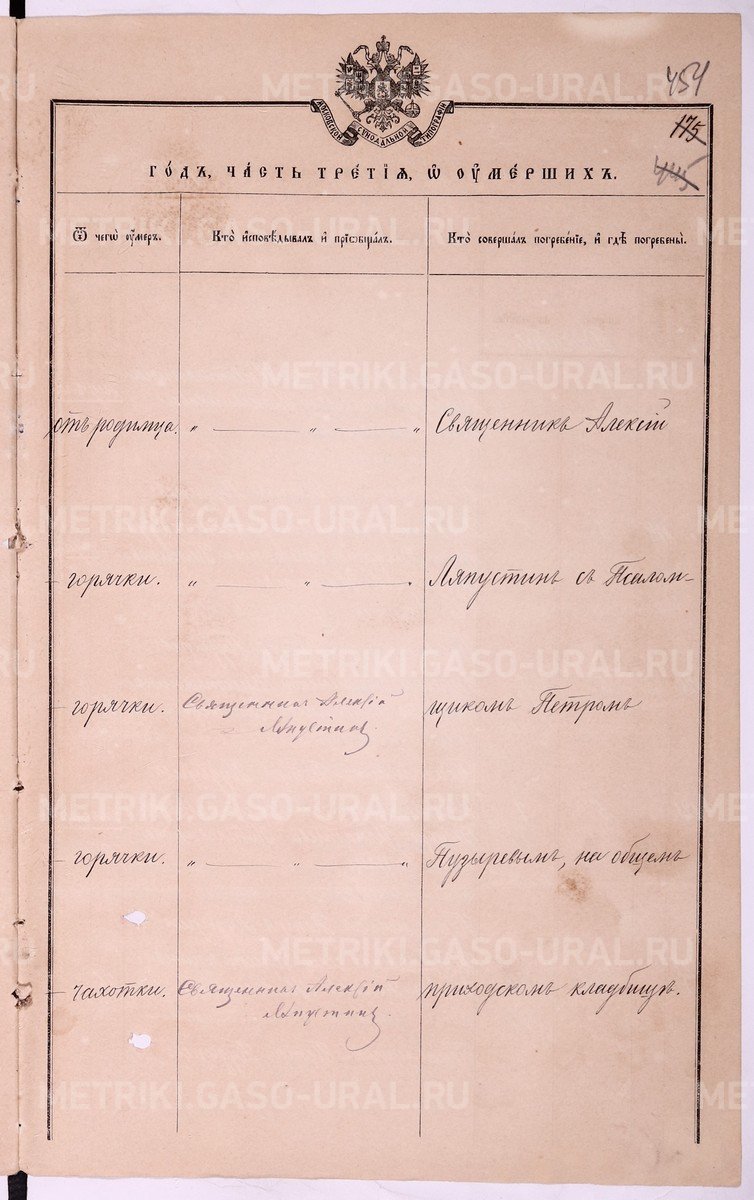 454
175
445
МОСКОВСКОЙ СѴНОДАЛЬНОЙ ТИПОГРАФІИ
ГО́ДЪ, ЧА́СТЬ ТРЕ́ТІѦ, Ѡ҆ ОУ҆МЕ́РШИХЪ.
Ѿ чегѡ̀ оу҆́меръ.
Кто̀ и҆сповѣ́дывалъ и҆ прїѡбща́лъ.
Кто̀ соверша́лъ погребе́нїе, и҆ гдѣ̀ погребены̀.
отъ родимца. " — " — " Священникъ Алексій
— горячки. " — " — " Ляпустинъ съ Псалом-
— горячки. Священникъ Алексій щикомъ Петромъ
Ляпустинъ.
— горячки. " — " — " Пузыревымъ, на общемъ
— чахотки. Священникъ Алексій приходскомъ кладбищѣ.
Ляпустинъ.
METRIKI.GASO-URAL.RU